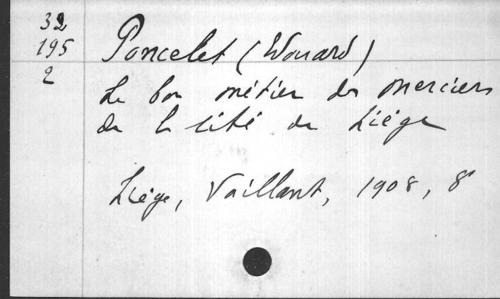 32
195
2
Poncelet (Edouard)
Le bon métier des merciers
de la cité de Liége
Liége, Vaillant, 1908, 8°